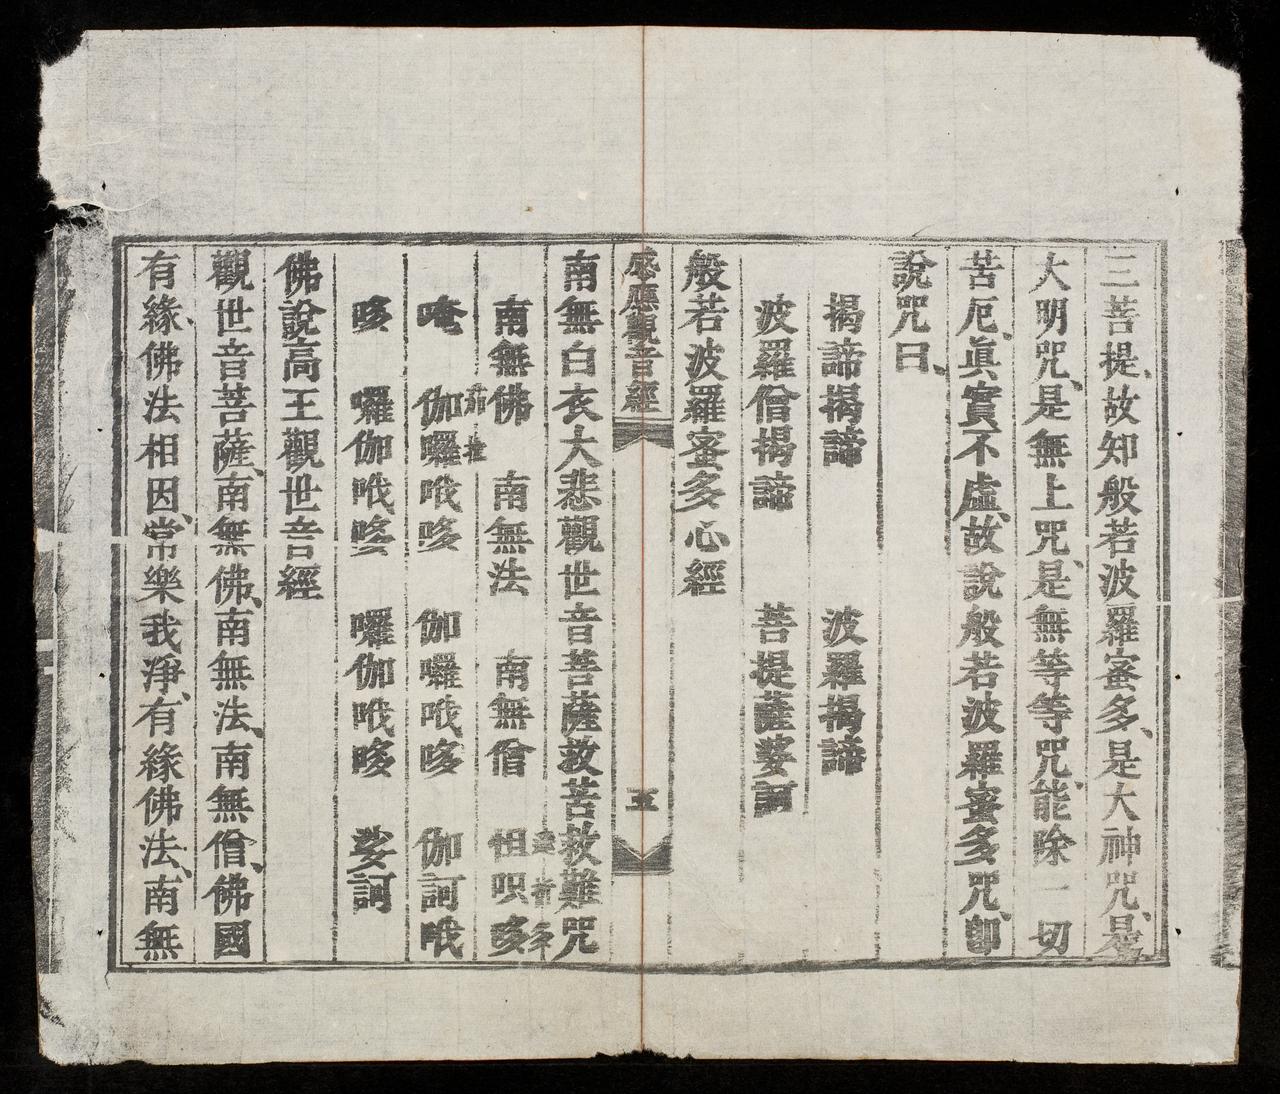 三菩提、故知般若波羅蜜多、是大神咒、是
大明咒、是無上咒、是無等等咒、能除一切
苦厄、眞實不虛、故說般若波羅蜜多咒、卽
說咒曰、
揭諦揭諦　波羅揭諦
波羅僧揭諦　菩提薩婆訶
般若波羅蜜多心經
感應觀音經　五
南無白衣大悲觀世音菩薩救苦救難咒
南無佛　南無法　南無僧　怛呾哆
唵　伽囉哦哆　伽囉哦哆　伽訶哦
哆　囉伽哦哆　囉伽哦哆　娑訶
佛說高王觀世音經
觀世音菩薩、南無佛、南無法、南無僧、佛國
有緣、佛法相因、常樂我淨、有緣佛法、南無